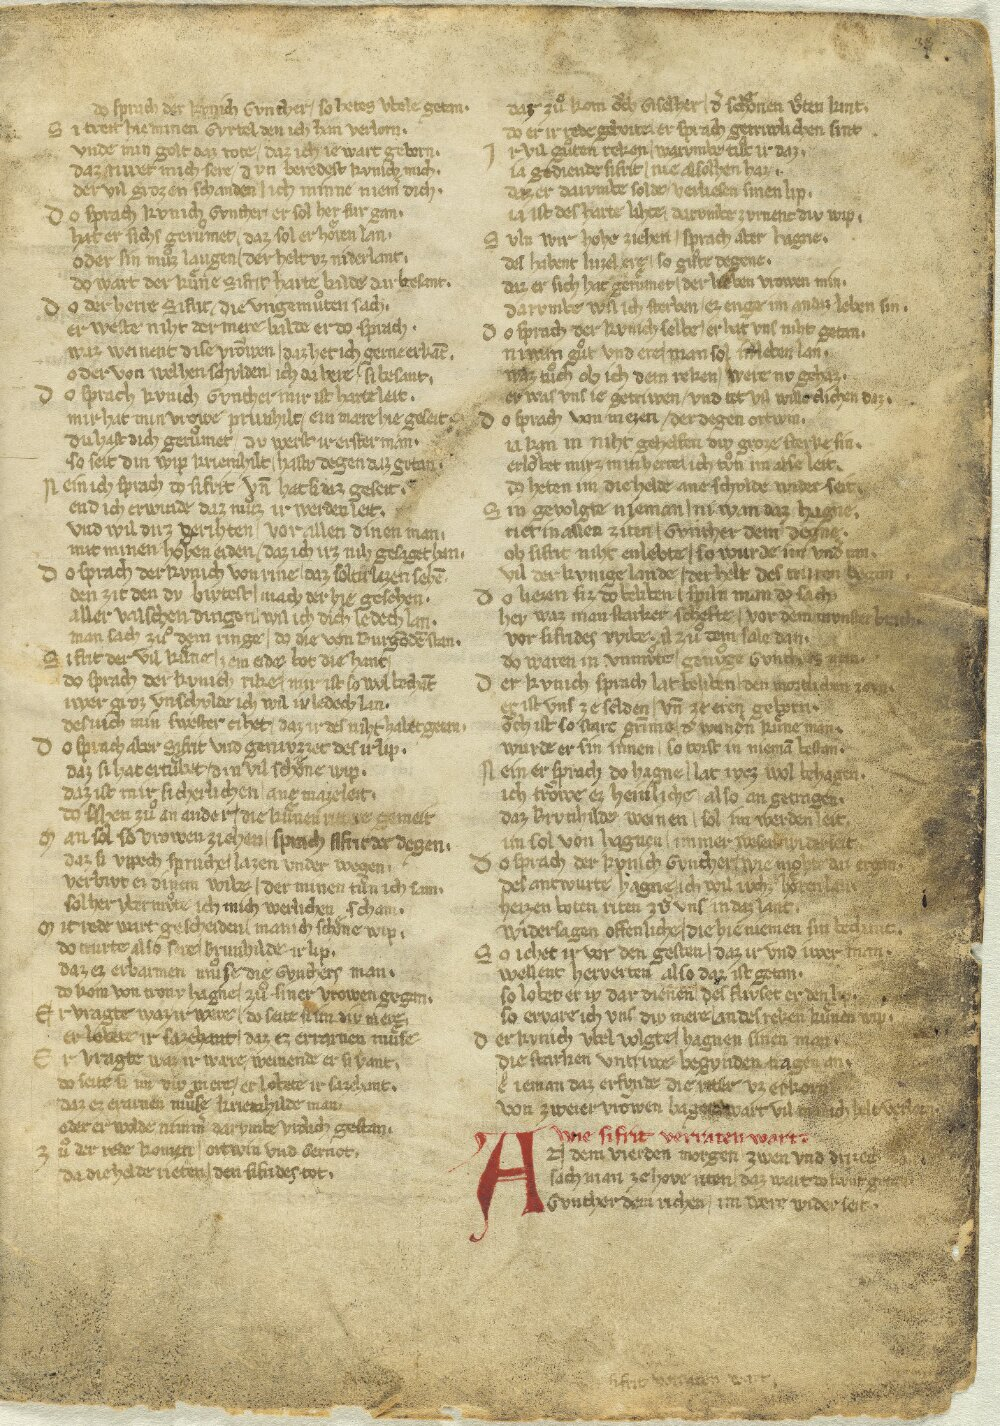 do sprach der kvnich Gvnther / so hetes vbele getan.
Si treit hie minen Gvrtel den ich han verlorn.
vnde min golt daz rote / daz ich ie wart geborn.
daz rivet mich sere / dvn beredest kvnich mich.
der vil grozen schanden / ich minne niemer dich.
Do sprach kvnich Gvnther / er sol her fur gan.
hat er sichs gerůmet / daz sol er hören lan.
oder sin můz laugen / der helt vz niderlant.
do wart der kůne Sifrit harte balde dar besant.
Do der herre Sifrit / die vngemůten sach.
er weste niht der mere / balde er do sprach.
waz weinent dise vrowen / daz het ich gerne erkāt.
oder von welhen schvlden / ich da here si besant.
Do sprach kvnich Gvnther mir ist harte leit.
mir hat min vrowe prvnhilt / ein mare hie geseit.
dv hast dich gerůmet dv werst ir erster man.
so seit din wip kriemhilt / hastv degen daz getan.
Nein ich sprach do sifrit vn̄ hat si daz geseit.
end ich erwinde daz můz ir werden leit.
vnd wil dirz berihten / vor allen dinen man.
mit minen hohen eiden / daz ich irz niht gesaget han.
Do sprach der kvnich von rine / daz soltv lazen sehē.
den eit den dv bivtest / mach der hie geschehen.
aller valschen dingen / wil ich dich ledech lan.
man sach zů dem ringe / do die von Burgōdē stan.
Sifrit der vil kůne / zem eide bot die hant
do sprach der kvnich rike / mir ist so wol bechāt
iwer groz vnschvlde ich wil iv ledech lan.
des iuch min swester zihet / daz ir des niht habet getan.
Do sprach aber Sifrit vnd genivzzet des ir lip.
daz si hat ertrůbet / din vil schöne wip.
daz ist mir sicherlichen / ane maze leit.
do sahen zů an ander / die kůnen ritter gemeit
Man sol so vrowen ziehen / sprach sifrit der degen.
daz si vppech spruche / lazen vnder wegen.
verbivt ez dinem wibe / der minen tůn ich sam.
solher vbermůte ich mich werlichen scham.
Mit rede wart gescheiden / manich schöne wip.
do trurte also sere / brunhilde ir lip.
daz ez erbarmen můse die Gvnthers man.
do kom von trony hagne / zů siner vrowen gegan.
Er vragte waz ir were / do seite si im div mere
er lobete ir sazehant / daz ez erarnen můse
Er vragte waz ir ware, weinende er si vant.
do seite si im div mere / er lobete ir sazehant.
daz ez erarnen můse kriemhilde man
oder er wolde nimmer darvmbe vrölich gestan.
Zů der rede komen / ortwin vnd Gernot.
da die helde rieten / den sifrides tot.
dar zů kom öch Giselher / d' schönen vten kint.
do er ir rede gehorte er sprach getriwlichen sint
Ir vil gůten reken / warvmbe tůt ir daz.
ia gediende sifrit / nie alsolhen haz.
daz er darvmbe solde / verliesen sinen lip.
ia ist des harte lihte / darvmbe zvrnent div wip.
Svln wir gohe ziehen / sprach aber hagne.
des habent luzel ere / so gůte degene.
daz er sich hat gerůmet / der lieben vrowen min.
darvmbe wil ich sterben / ez enge im an daz leben sin.
Do sprach der kvnich selbe / er hat vns niht getan.
niwan gůt vnd ere / man sol in leben lan.
waz töch ob ich dem reken / were nv gehaz.
er was vns ie getriwe / vnd tet vil willeclichen daz.
Do sprach von mezen / der degen ortwin.
ia kan in niht gehelfen div groze sterke sin.
erlöbet mirz min herre / ich tůn im alse leit.
do heten im die helde ane schvlde wider seit.
Sin gevolgte nieman / ni wan daz hagne.
riet in allen ziten / Gvnther dem degne.
ob sifrit niht enlebte / so wurde im vnd tan.
vil der kvnige lande / der helt des truren began
Do liezen siz do beliben / spiln man do sach
hey waz man starker schefte / vor dem mvnster brach.
vor sifrides wibe / al zů dem sale dan.
do waren in vnmůte / genůge Gvnthers man.
Der kvnich sprach lat beliben / den mortlichen zorn.
er ist vns ze selden / vn̄ ze eren geborn.
öch ist so starc grimme d' wunder kůne man.
wurde er sin innen / so torst in niemā bestan.
Nein er sprach do hagne / lat ivz wol behagen.
ich trowe ez heinliche / also an getragen.
daz Brvnhilde weinen / sol im werden leit.
im sol von hagnen / immer wesen widerseit.
Do sprach der kvnich Gvnther / wie moht daz ergan.
des antwurte hagne / ich wil ivchz hören lan
heizen boten riten zů vns in daz lant.
widersagen offenliche / die hie niemen sin bechant.
So iehet ir vor den gesten / daz ir vnd iwer man.
wellent herverten also daz ist getan.
so lobet er iv dar dienen / des flivset er den lip.
so ervare ich vns div mere / an des reken kůnen wip.
Der kvnich vbel volgte / hagnen sinen man.
die starken vntriwe begvnden tragen an.
e ieman daz erfvnde die ritter vz erkorn
von zweier vrowen bagen / wart vil manich helt verlorn.
wie sifrit verraten wart.
An dem vierden morgen zwen vnd drizec
sach man ze hove riten / daz wart do kvnt getan
Gvnther dem richen / im were wider seit.
sifrit verraten wart.